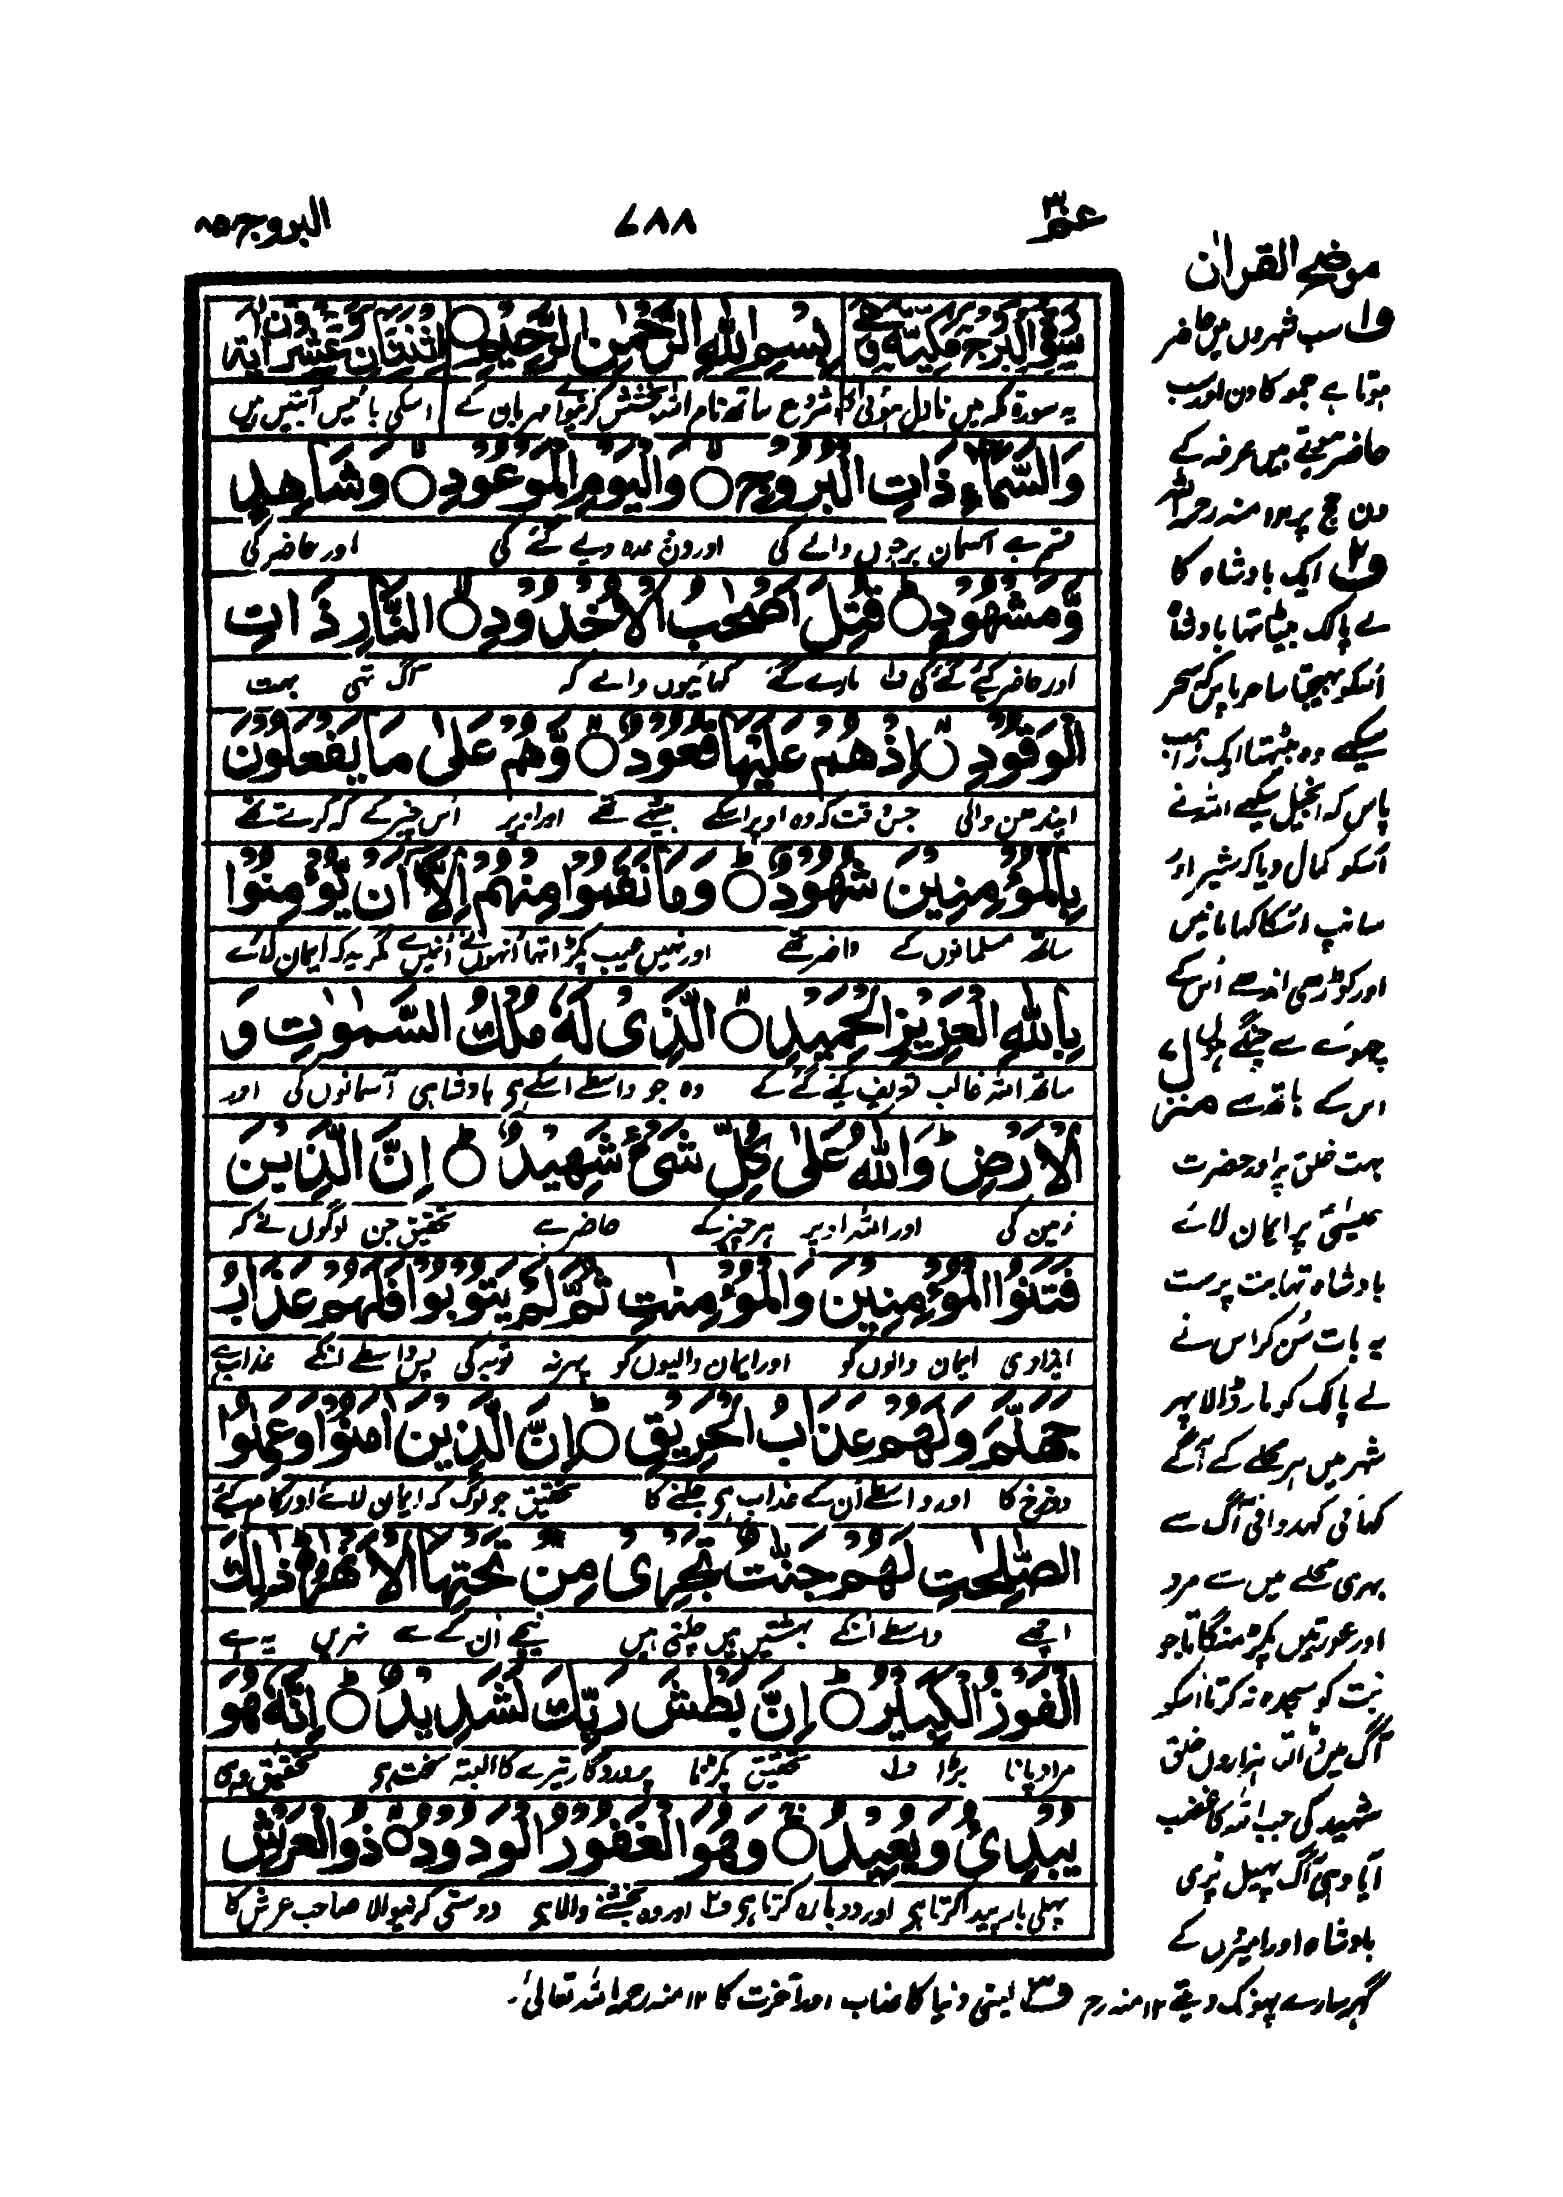 عم ٣٠
٧٨٨
البروج ٨٥
سورة البروج مكية وهي
بِسْمِ اللهِ الرَّحْمٰنِ الرَّحِيْمِ
اثنتان وعشرون اية
یہ سورۃ مکہ میں نازل ہوئی
شروع ساتھ نام اللہ بخشش کرنیوالے مہربان کے
اسکی بائیس آیتیں ہیں
وَالسَّمَآءِ ذَاتِ الْبُرُوْجِ ۙ وَالْيَوْمِ الْمَوْعُوْدِ ۙ وَشَاهِدٍ
قسم ہے آسمان برجوں والے کی اور دن وعدہ دیے گئے کی اور حاضر کی
وَّمَشْهُوْدٍ ؕ قُتِلَ اَصْحٰبُ الْاُخْدُوْدِ ۙ النَّارِ ذَاتِ
اور حاضر کیے گئے کی ف مارے گئے کھائیوں والے کہ آگ تھی بہت
الْوَقُوْدِ ۙ اِذْ هُمْ عَلَيْهَا قُعُوْدٌ ۙ وَّهُمْ عَلٰى مَا يَفْعَلُوْنَ
ایندھن والی جس وقت کہ وہ اوپر اسکے بیٹھے تھے اور اوپر اس چیز کے کہ کرتے تھے
بِالْمُؤْمِنِيْنَ شُهُوْدٌ ؕ وَمَا نَقَمُوْا مِنْهُمْ اِلَّاۤ اَنْ يُّؤْمِنُوْا
ساتھ مسلمانوں کے حاضر تھے اور نہیں عیب پکڑا تھا انہوں نے انسے مگر یہ کہ ایمان لائے
بِاللهِ الْعَزِيْزِ الْحَمِيْدِ ۙ الَّذِىْ لَهٗ مُلْكُ السَّمٰوٰتِ وَ
ساتھ اللہ غالب تعریف کیے گئے کے وہ جو واسطے اسکے ہی بادشاہی آسمانوں کی اور
الْاَرْضِ ؕ وَاللهُ عَلٰى كُلِّ شَىْءٍ شَهِيْدٌ ؕ اِنَّ الَّذِيْنَ
زمین کی اور اللہ اوپر ہر چیز کے حاضر ہے تحقیق جن لوگوں نے کہ
فَتَنُوا الْمُؤْمِنِيْنَ وَالْمُؤْمِنٰتِ ثُمَّ لَمْ يَتُوْبُوْا فَلَهُمْ عَذَابُ
ایذا دی ایمان والوں کو اور ایمان والیوں کو پہر نہ توبہ کی پس واسطے انکے عذاب ہے
جَهَنَّمَ وَلَهُمْ عَذَابُ الْحَرِيْقِ ؕ اِنَّ الَّذِيْنَ اٰمَنُوْا وَعَمِلُوا
دوزخ کا اور واسطے اُن کے عذاب ہی جلنے کا تحقیق جو لوگ کہ ایمان لائے اور کام کیے
الصّٰلِحٰتِ لَهُمْ جَنّٰتٌ تَجْرِىْ مِنْ تَحْتِهَا الْاَنْهٰرُ ؕ ذٰلِكَ
اچھے واسطے انکے بہشتیں ہیں چلتی ہیں نیچے اُن کے سے نہریں یہ ہے
الْفَوْزُ الْكَبِيْرُ ؕ اِنَّ بَطْشَ رَبِّكَ لَشَدِيْدٌ ؕ اِنَّهٗ هُوَ
مراد پانا بڑا ف تحقیق پکڑنا پروردگار تیرے کا البتہ سخت ہی تحقیق وہی
يُبْدِئُ وَيُعِيْدُ ۚ وَهُوَ الْغَفُوْرُ الْوَدُوْدُ ۙ ذُو الْعَرْشِ
پہلی بار پیدا کرتا ہی اور دوبارہ کرتا ہی ف اور وہ بخشنے والا ہی دوستی کرنیوالا صاحب عرش کا
موضح القران
ف۱ سب شہروں میں حاضر
ہوتا ہے جمعہ کا دن اور سب
حاضر ہوتے ہیں عرفہ کے
دن حج پر ۱۲ منہ رحمہ اللہ
ف۲ ایک بادشاہ کا
لے پالک بیٹا تھا بادشاہ
اُسکو بہیجتا ساحر پاس کہ سحر
سیکھے وہ بیٹھتا ایک راہب
پاس کہ انجیل سیکھے اللہ نے
اسکو کمال دیا کہ شیر اور
سانپ اسکا کہا مانیں
اور کوڑھی اندھے اس کے
چھونے سے چنگے ہوں
اس کے ہاتھ سے
بہت خلق پر اور حضرت
عیسیٰؑ پر ایمان لائے
بادشاہ تھا بت پرست
یہ بات سن کر اس نے
لے پالک کو مار ڈالا پہر
شہر میں ہر محلے کے آگے
کہائی کہدوائی آگ سے
بہری محلے میں سے مرد
اور عورتیں پکڑ منگاتا جو
بت کو سجدہ نہ کرتا اسکو
آگ میں ڈالتا ہزاروں خلق
شہید کی جب اللہ کا غضب
آیا وہی آگ پہیل پڑی
بادشاہ اور امیروں کے
گہر سارے پہونک دیے ۱۲ منہ رح ف۳ یعنی دنیا کا عذاب اور آخرت کا ۱۲ منہ رحمہ اللہ تعالیٰ۔